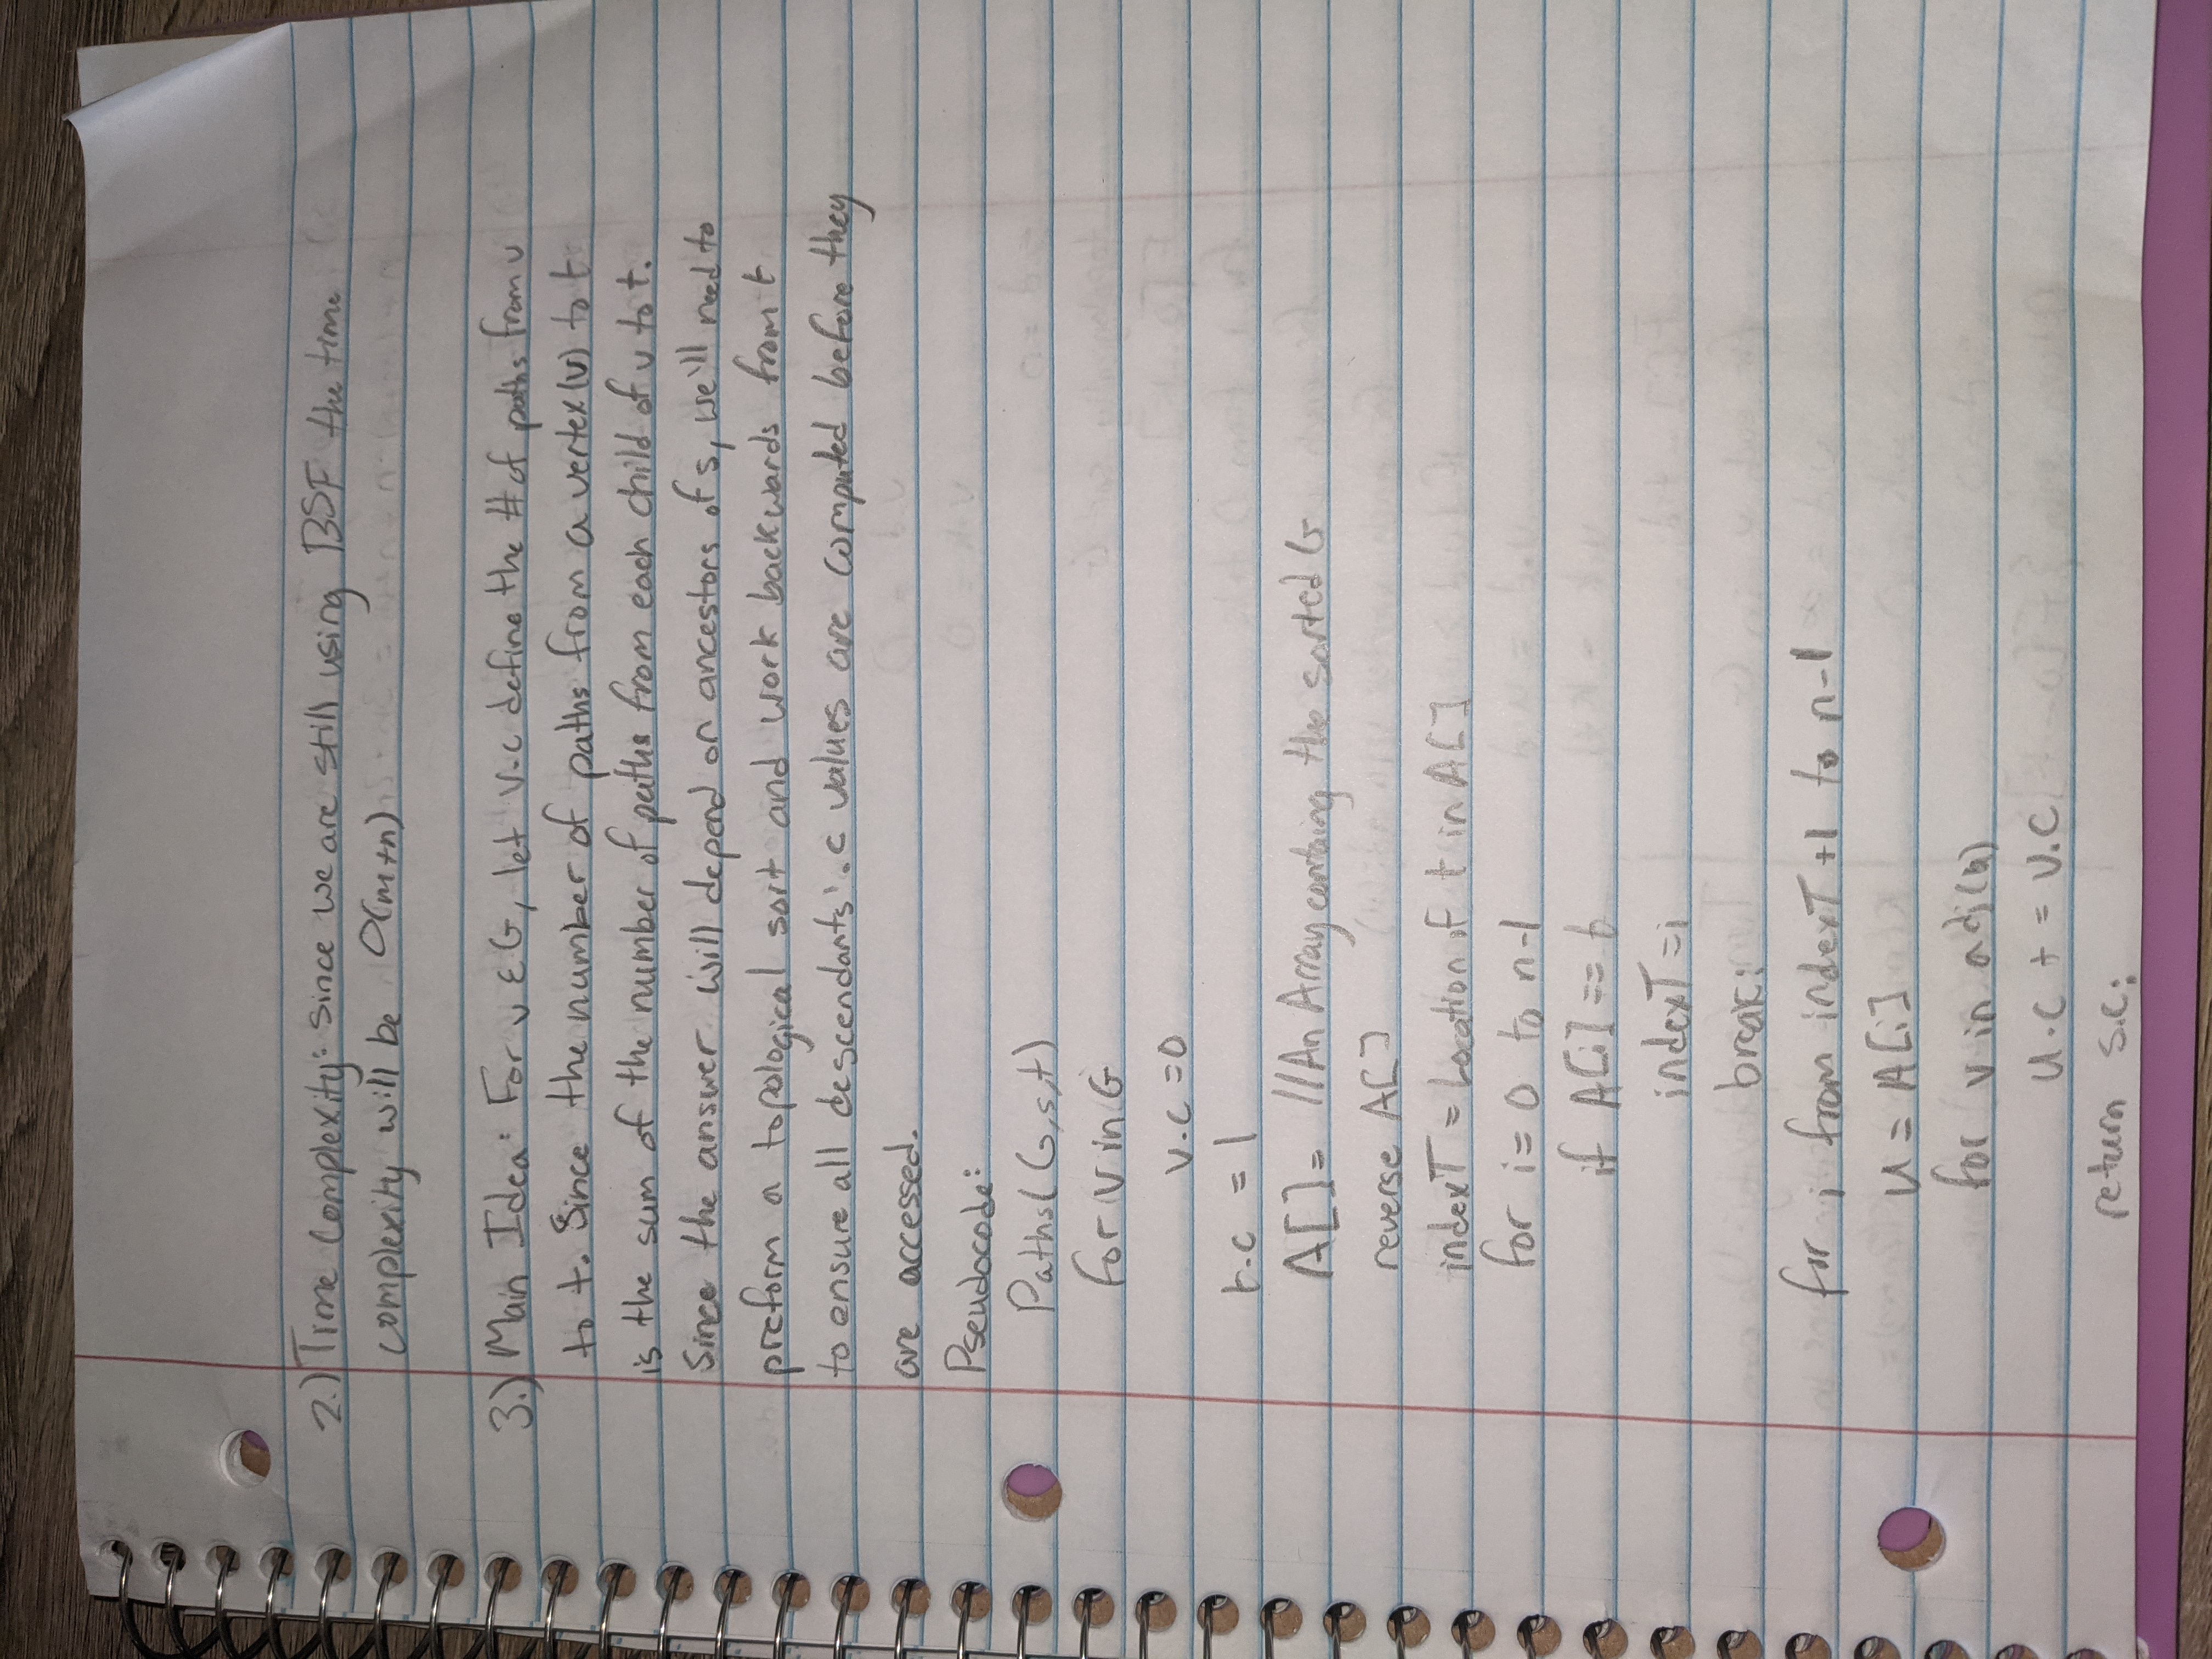 2.) Time Complexity: since we are still using BSF the time
complexity will be O(m+n)
3.) Main Idea: For v ε G, let v.c define the # of paths from v
to t. Since the number of paths from a vertex(v) to t
is the sum of the number of paths from each child of v to t.
Since the answer will depend on ancestors of s, we'll need to
preform a topological sort and work backwards from t
to ensure all descendants' .c values are computed before they
are accessed.
Pseudocode:
Paths(G,s,t)
for v in G
v.c = 0
t.c = 1
A[] = //An Array containing the sorted G
reverse A[]
indexT = Location of t in A[]
for i = 0 to n-1
if A[i] == t
indexT = i
break;
for i from indexT +1 to n-1
u = A[i]
for v in adj(u)
u.c += v.c
return s.c;